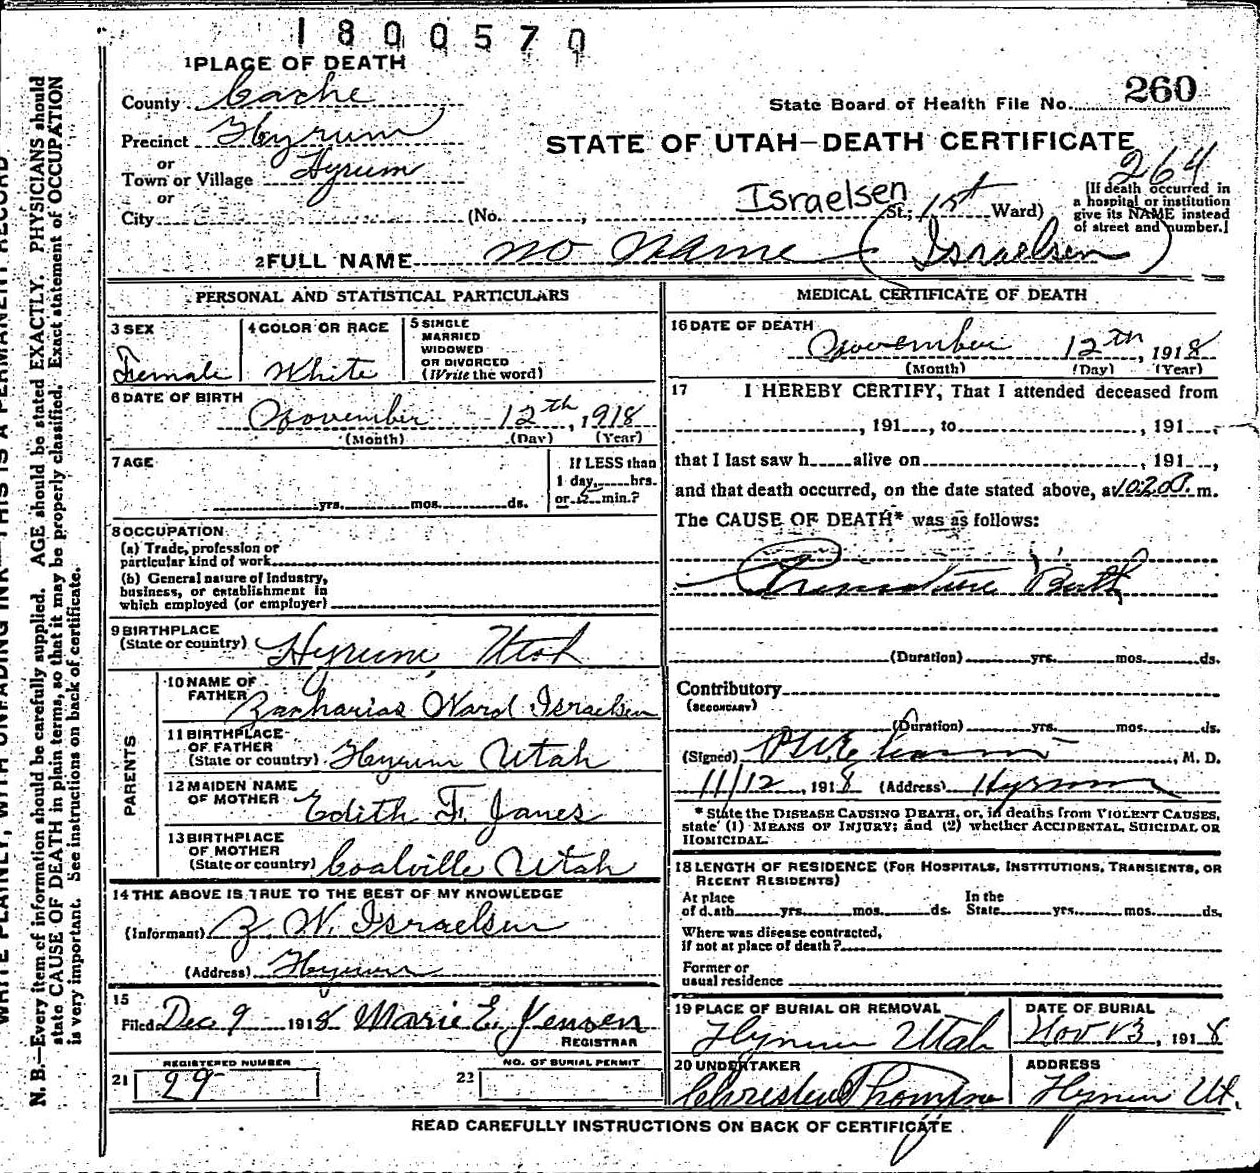 1800570
1 PLACE OF DEATH
County Cache
260
State Board of Health File No.
Precinct Hyrum
STATE OF UTAH—DEATH CERTIFICATE
or
Town or Village Hyrum
264
or
City (No. , Israelsen St.; 1st Ward)
[If death occurred in
a hospital or institution
give its NAME instead
of street and number.]
2 FULL NAME no name (Israelsen)
PERSONAL AND STATISTICAL PARTICULARS
3 SEX
Female
4 COLOR OR RACE
White
5 SINGLE
MARRIED
WIDOWED
OR DIVORCED
(Write the word)
6 DATE OF BIRTH
November 12th, 1918
(Month) (Day) (Year)
7 AGE
yrs. mos. ds.
If LESS than
1 day, hrs.
or 5 min.?
8 OCCUPATION
(a) Trade, profession or
particular kind of work
(b) General nature of Industry,
business, or establishment in
which employed (or employer)
9 BIRTHPLACE
(State or country) Hyrum, Utah
PARENTS
10 NAME OF
FATHER Zacharias Ward Israelsen
11 BIRTHPLACE
OF FATHER
(State or country) Hyrum Utah
12 MAIDEN NAME
OF MOTHER Edith F. Janes
13 BIRTHPLACE
OF MOTHER
(State or country) Coalville Utah
14 THE ABOVE IS TRUE TO THE BEST OF MY KNOWLEDGE
(Informant) Z. W. Israelsen
(Address) Hyrum
15
Filed Dec 9 1918 Marie E. Jensen
REGISTRAR
REGISTERED NUMBER
21 29
NO. OF BURIAL PERMIT
22
MEDICAL CERTIFICATE OF DEATH
16 DATE OF DEATH
November 12th, 1918
(Month) (Day) (Year)
17 I HEREBY CERTIFY, That I attended deceased from
, 191 , to , 191 ,
that I last saw h alive on , 191 ,
and that death occurred, on the date stated above, at 10:20 m.
The CAUSE OF DEATH* was as follows:
Premature Birth
(Duration) yrs. mos. ds.
Contributory
(SECONDARY)
(Duration) yrs. mos. ds.
(Signed) , M. D.
11/12, 1918 (Address) Hyrum
* State the DISEASE CAUSING DEATH, or, in deaths from VIOLENT CAUSES,
state (1) MEANS OF INJURY; and (2) whether ACCIDENTAL, SUICIDAL OR
HOMICIDAL.
18 LENGTH OF RESIDENCE (FOR HOSPITALS, INSTITUTIONS, TRANSIENTS, OR
RECENT RESIDENTS)
At place
of death yrs. mos. ds.
In the
State yrs. mos. ds.
Where was disease contracted,
if not at place of death?
Former or
usual residence
19 PLACE OF BURIAL OR REMOVAL
Hyrum Utah
DATE OF BURIAL
Nov 13, 1918
20 UNDERTAKER
ADDRESS
Hyrum Ut.
READ CAREFULLY INSTRUCTIONS ON BACK OF CERTIFICATE
WRITE PLAINLY, WITH UNFADING INK—THIS IS A PERMANENT RECORD
N. B.—Every item of information should be carefully supplied. AGE should be stated EXACTLY. PHYSICIANS should
state CAUSE OF DEATH in plain terms, so that it may be properly classified. Exact statement of OCCUPATION
is very important. See instructions on back of certificate.